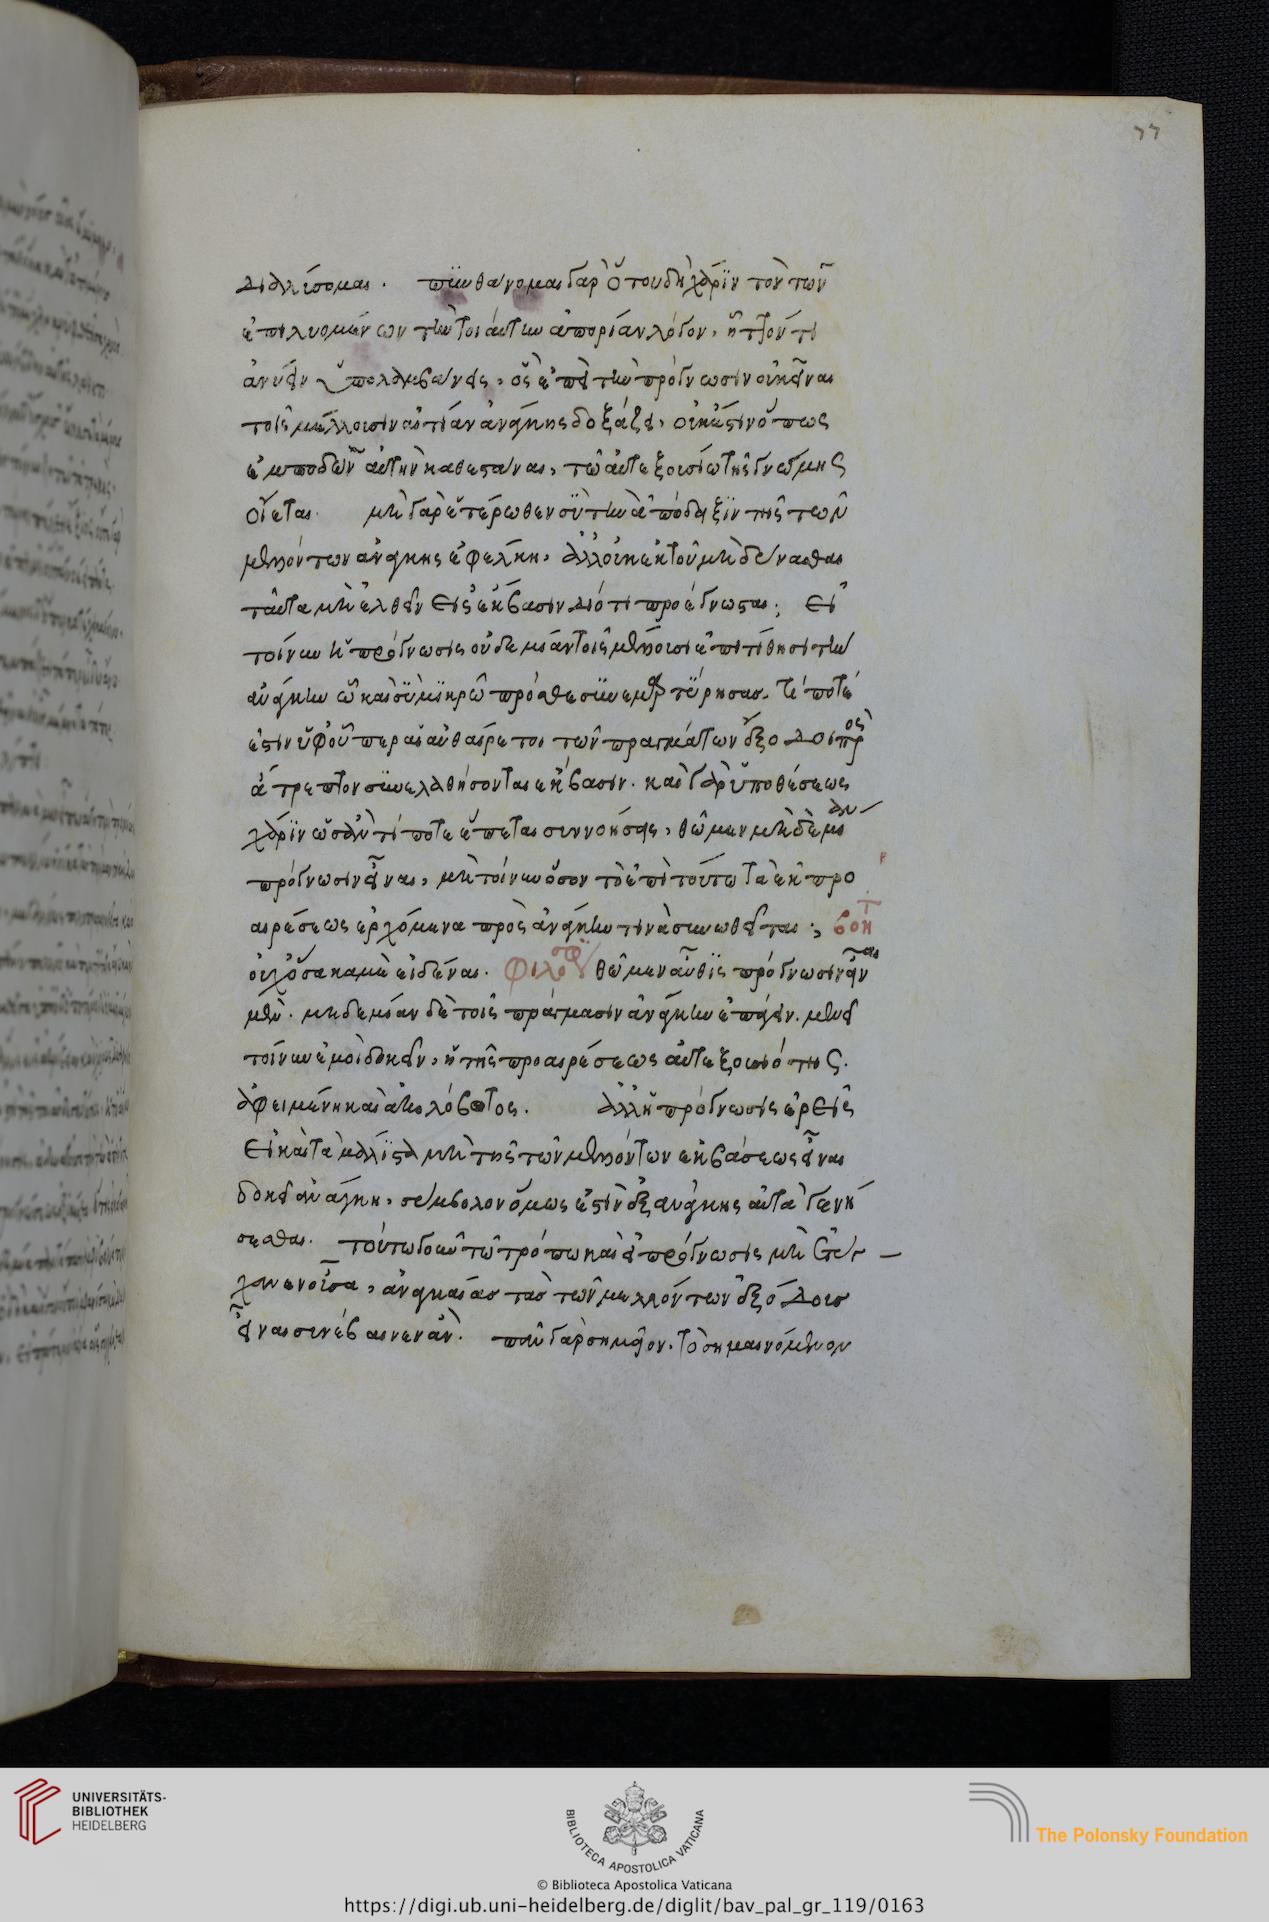 77
διαλύσομαι. πυνθάνομαι γὰρ ὅτου δὴ χάριν τὸν τῶν
ἐπιλυομένων τὴν τοιαύτην ἀπορίαν λόγον, ἧττόν τι
ἀνύειν ὑπολαμβάνεις, ὃς ἐπεὶ τὴν πρόγνωσιν οὐκ εἶναι
τοῖς μέλλουσιν αἰτίαν ἀνάγκης δοξάζει, οὐκ ἔστιν ὅπως
ἐμποδὼν αὐτὴν καθεστάναι, τῶ αὐτεξουσίω τῆς γνώμης
οἴεται. μὴ γὰρ ἑτέρωθεν σὺ τὴν ἀπόδειξιν τῆς τῶν
μελλόντων ἀνάγκης ἐφέλκη, ἀλλ' οὐκ ἐκ τοῦ μὴ δύνασθαι
ταῦτα μὴ ἐλθεῖν εἰς ἔκβασιν διότι προέγνωσται; εἰ
τοίνυν ἡ πρόγνωσις οὐδεμίαν τοῖς μέλλουσιν ἐπιτίθησι τὴν
ἀνάγκην ᾧ καὶ σὺ μικρῶ πρόσθε συνεμαρτύρησας, τί ποτέ
ἐστιν ὑφ' οὗπερ αἱ αὐθαίρετοι τῶν πραγμάτων ἔξοδοι πρὸς
ἄτρεπτον συνελαθήσονται ἔκβασιν. καὶ γὰρ ὑποθέσεως
χάριν ὡς ἂν τί ποτε ἕπεται συννοήσης, θῶμεν μηδεμίαν
πρόγνωσιν εἶναι, μὴ τοίνυν ὅσον τὸ ἐπὶ τούτω τὰ ἐκ προ
αιρέσεως ἐρχόμενα πρὸς ἀνάγκην τινὰ συνωθεῖται; βοητ
οὐχ ὅσα κἀμὲ εἰδέναι. φιλοσοφ θῶμεν αὖθις πρόγνωσιν εἶναι
μέν. μηδεμίαν δὲ τοῖς πράγμασιν ἀνάγκην ἐπάγειν. μενεῖ
τοίνυν ἐμοὶ δοκεῖν, ἡ τῆς προαιρέσεως αὐτεξουσιότης.
ἀφειμένη καὶ ἀκολόβωτος. ἀλλ' ἡ πρόγνωσις ἐρεῖς
εἰ καὶ τὰ μάλιστα μὴ τῆς τῶν μελλόντων ἐκβάσεως εἶναι
δοκεῖ ἀνάγκη, σύμβολον ὅμως ἐστὶν ἐξ ἀνάγκης αὐτὰ γενή
σεσθαι. τούτω γοῦν τῶ τρόπω καὶ εἰ πρόγνωσις μὴ ἐτύγ
χανεν οὖσα, ἀναγκαίας τὰς τῶν μελλόντων ἐξόδους
εἶναι συνέβαινεν ἄν. πᾶν γὰρ σημεῖον, τὸ σημαινόμενον
UNIVERSITÄTS-
BIBLIOTHEK
HEIDELBERG
BIBLIOTECA APOSTOLICA VATICANA
The Polonsky Foundation
© Biblioteca Apostolica Vaticana
https://digi.ub.uni-heidelberg.de/diglit/bav_pal_gr_119/0163